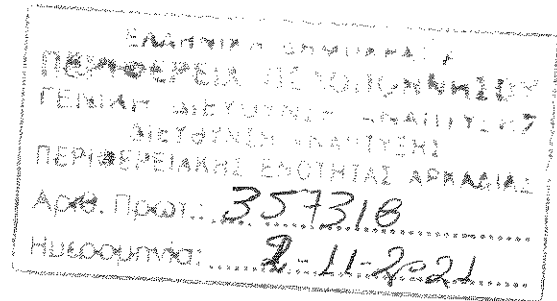 ΕΛΛΗΝΙΚΗ ΔΗΜΟΚΡΑΤΙΑ
ΠΕΡΙΦΕΡΕΙΑ ΠΕΛΟΠΟΝΝΗΣΟΥ
ΓΕΝΙΚΗ ΔΙΕΥΘΥΝΣΗ ΑΝΑΠΤΥΞΗΣ
ΔΙΕΥΘΥΝΣΗ ΑΝΑΠΤΥΞΗΣ
ΠΕΡΙΦΕΡΕΙΑΚΗΣ ΕΝΟΤΗΤΑΣ ΑΡΚΑΔΙΑΣ
Αριθ. Πρωτ.: 357318
Ημερομηνία: -11-2021